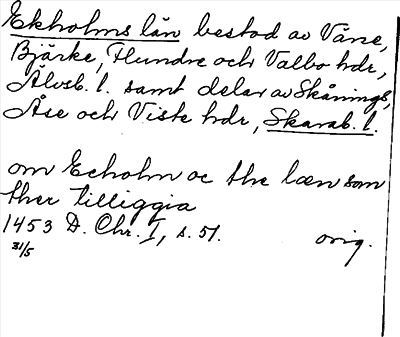 Ekholms län bestod av Väne,
Bjärke, Flundre och Valbo hdr,
Älvsb. l. samt delar av Skånings,
Åse och Viste hdr, Skarab. l.
om Echolm oc the læn som
ther tilliggia
1453 D. Chr. I, s. 51. orig.
31/5